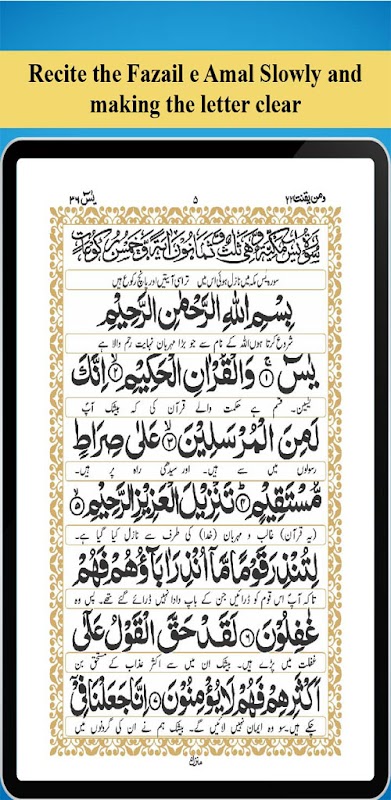 Recite the Fazail e Amal Slowly and
making the letter clear
ومن يقنت ٢٢ ۵ يٰسٓ ٣٦
سورہ یٰس مکہ میں نازل ہوئی اس میں تراسی آیتیں اور پانچ رکوع ہیں
بِسْمِ اللّٰهِ الرَّحْمٰنِ الرَّحِيْمِ
شروع کرتا ہوں اللہ کے نام سے جو بڑا مہربان نہایت رحم والا ہے
يٰسٓ ﴿١﴾ وَالْقُرْاٰنِ الْحَكِيْمِ ﴿٢﴾ اِنَّكَ
یٰسین۔ قسم ہے حکمت والے قرآن کی کہ بیشک آپ
لَمِنَ الْمُرْسَلِيْنَ ﴿٣﴾ عَلٰى صِرَاطٍ
رسولوں میں سے ہیں۔ اور سیدھی راہ پر ہیں۔
مُّسْتَقِيْمٍ ﴿٤﴾ تَنْزِيْلَ الْعَزِيْزِ الرَّحِيْمِ ﴿٥﴾
(یہ قرآن) غالب و مہربان (خدا) کی طرف سے نازل کیا گیا ہے۔
لِتُنْذِرَ قَوْمًا مَّاۤ اُنْذِرَ اٰبَآؤُهُمْ فَهُمْ
تاکہ آپ اس قوم کو ڈرائیں جن کے باپ دادا نہیں ڈرائے گئے تھے۔ پس وہ
غٰفِلُوْنَ ﴿٦﴾ لَقَدْ حَقَّ الْقَوْلُ عَلٰٓى
غفلت میں پڑے ہیں۔ بیشک ان میں سے اکثر عذاب کے مستحق بن
اَكْثَرِهِمْ فَهُمْ لَا يُؤْمِنُوْنَ ﴿٧﴾ اِنَّا جَعَلْنَا فِيْٓ
چکے ہیں۔ سو وہ ایمان نہیں لائیں گے۔ بیشک ہم نے ان کی گردنوں میں